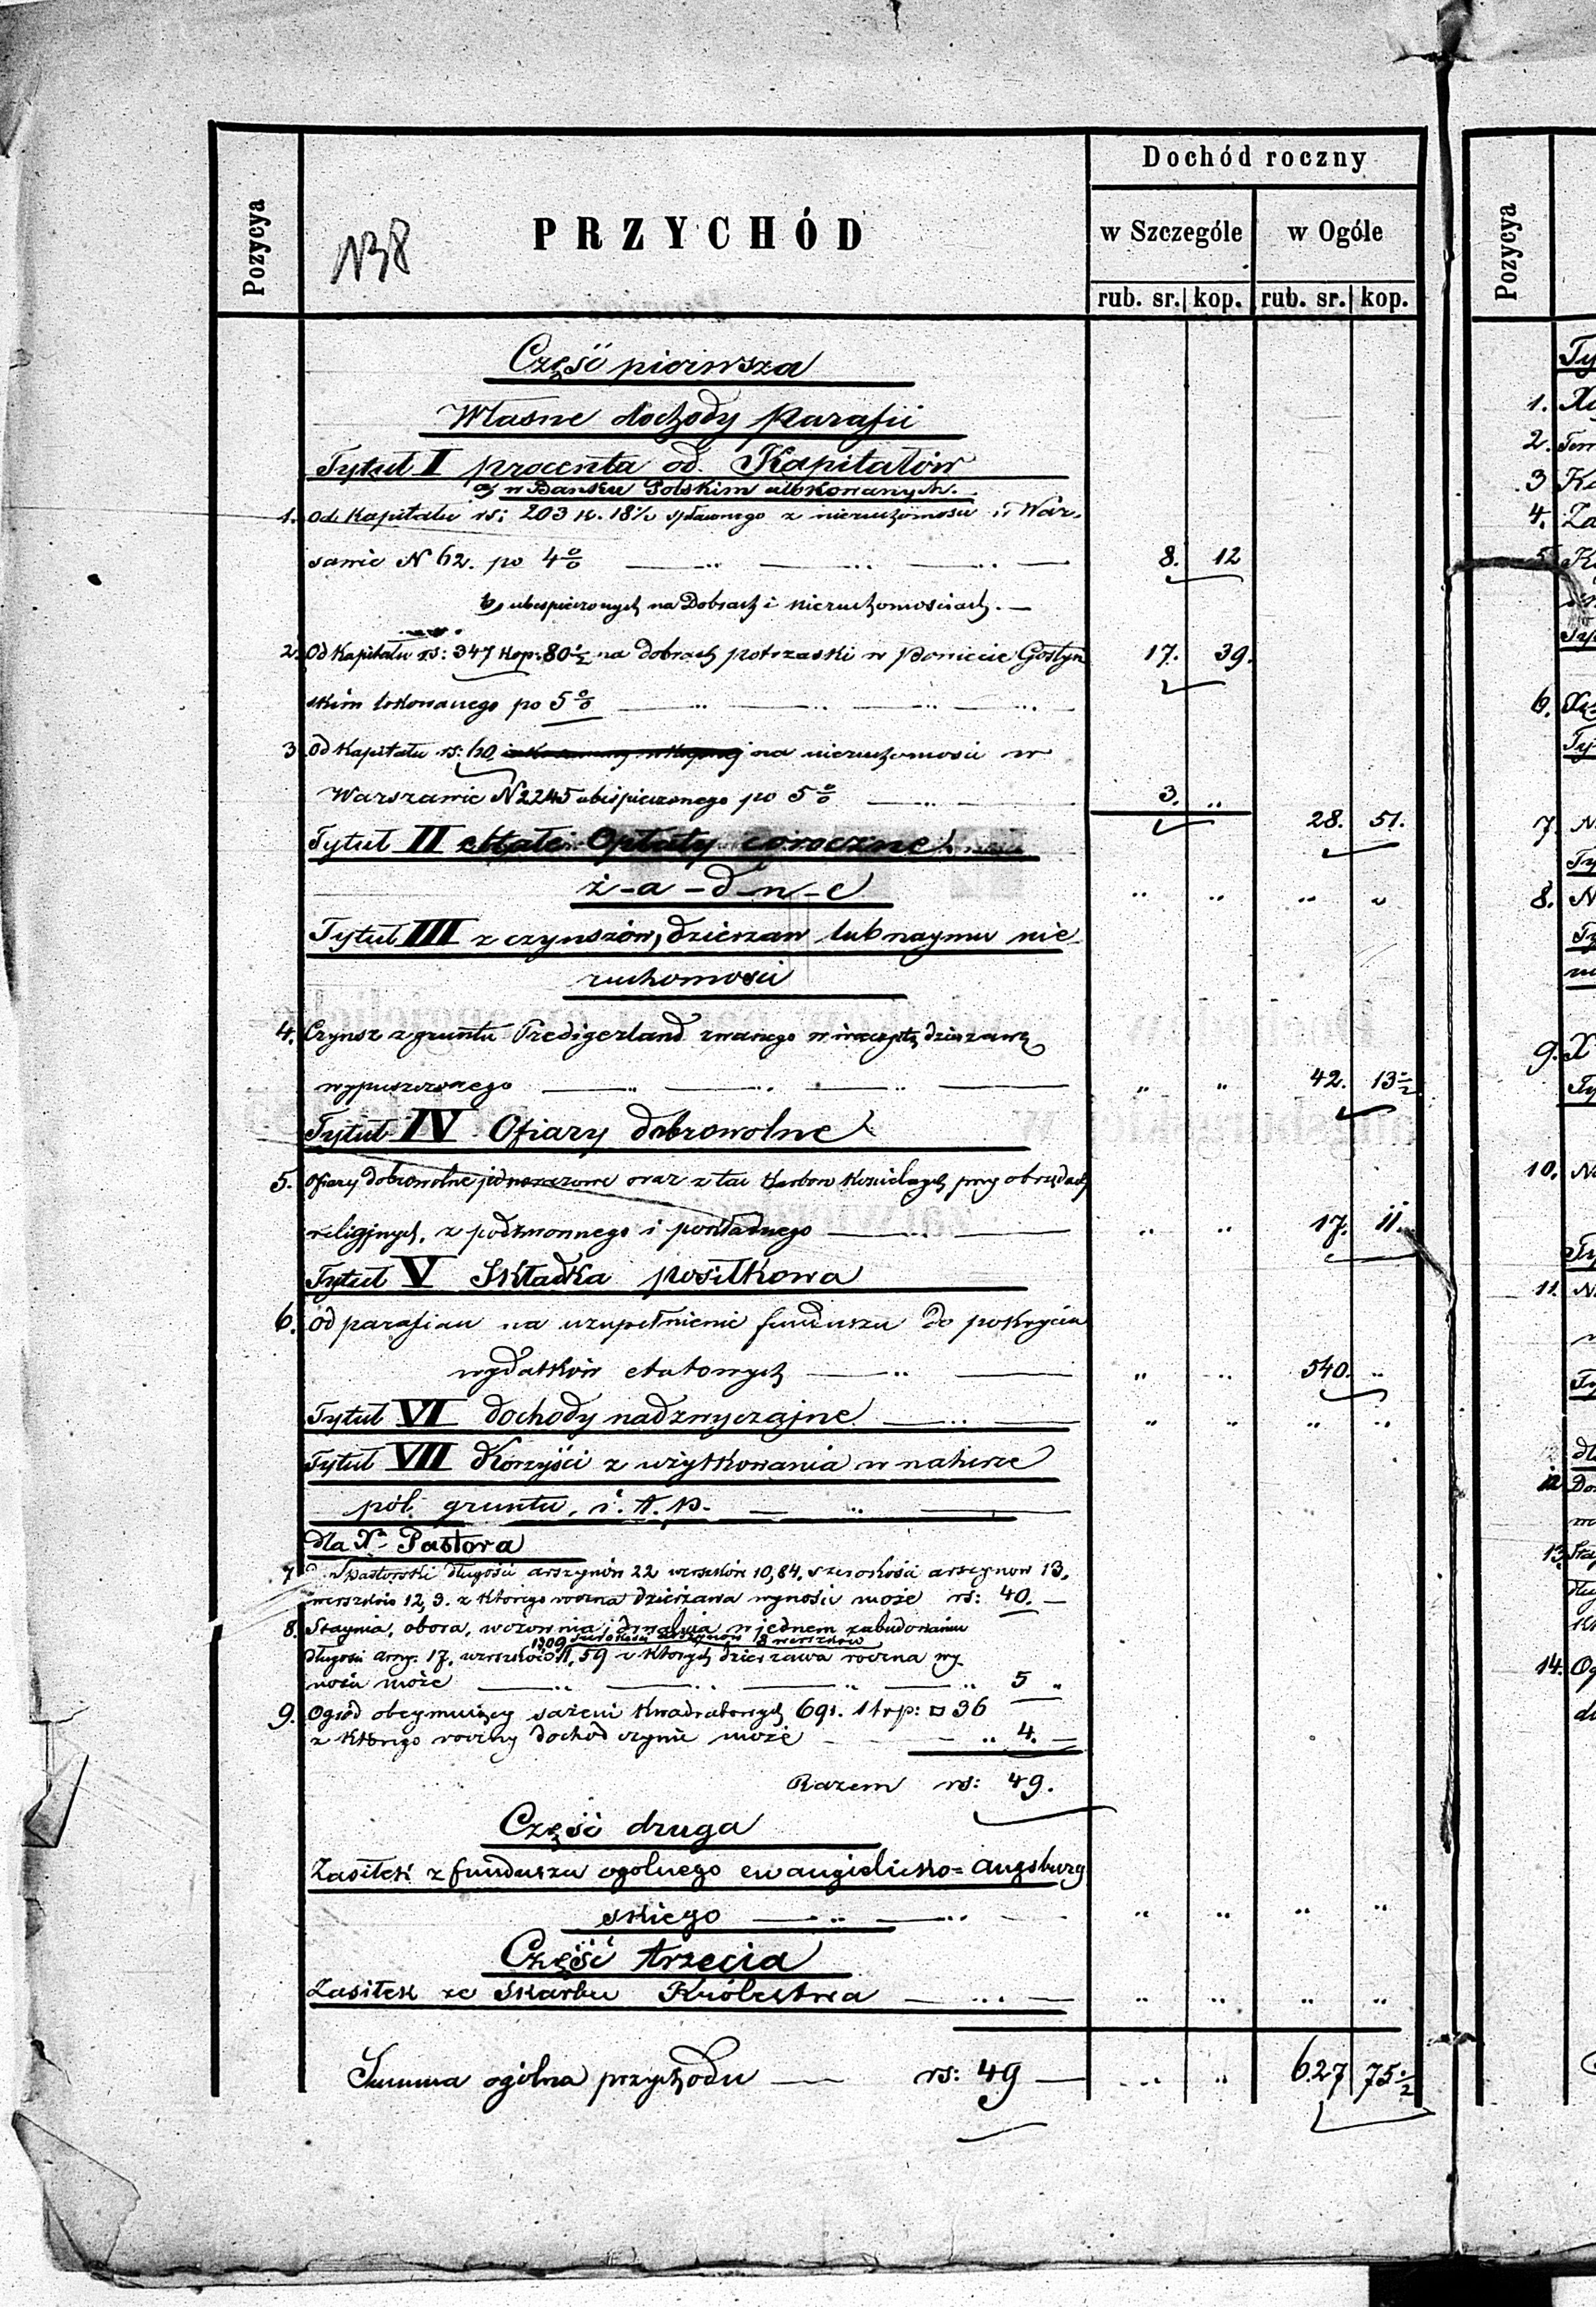 Dochód roczny
Pozycya
N38
PRZYCHÓD
w Szczególe
w Ogóle
Pozycya
rub. sr. kop. rub. sr. kop.
Część pierwsza
Własne dochody Parafii
Tytuł I procenta od Kapitałów
a, w Banku Polskim ulokowanych.
1. Od Kapitału rs: 203 k. 18½ spławnego z nieruchomości w War-
szawie N 62. po 4% 8. 12
b, ubespieczonych na Dobrach i nieruchomościach.
2. Od Kapitału rs: 347 kop: 80½ na dobrach Potrzaski w Powiecie Gostyń 17. 39.
skim lokowanego po 5%
3. Od Kapitału rs: 60 na nieruchomości w
Warszawie N 2245 ubespieczonego po 5% 3. ..
28. 51.
Tytuł II stałe Opłaty coroczne
ż-a-d-n-e .. .. .. ..
Tytuł III z czynszów, dzierżaw lub naymu nie
ruchomości
4. Czynsz z gruntu Predigerland zwanego w wieczystą dzierżawę
wypuszczonego .. .. 42. 13½
Tytuł IV Ofiary dobrowolne
5. Ofiary dobrowolne jednorazowe oraz z tac Karbon Kościelnych przy obrzędach
religijnych, z podzwonnego i pokładnego .. .. 17. 11.
Tytuł V Składka posiłkowa
6. od parafian na uzupełnienie funduszu do pokrycia
wydatków etatowych .. .. 540. ..
Tytuł VI dochody nadzwyczajne .. .. .. ..
Tytuł VII Korzyści z użytkowania w naturze
pól gruntu, i. t. p.
dla Xa Pastora
7. Pastorski długości arszynów 22 werszków 10,84. szerokości arszynow 13,
werszków 12,3. z którego roczna dzierżawa wynosić może rs: 40.
8. Staynia, obora, wozownia, drwalnia w jednem zabudowaniu
szerokości arszynów 13 werszków
długości arsz: 17. werszków 11,59 z których dzierżawa roczna wy-
nosić może 5 "
9. Ogród obeymuiący sażeni kwadratowych 691. stop: □ 36
z którego roczny dochód czynić może .. 4.
Razem rs: 49.
Część druga
Zasiłek z funduszu ogólnego ewangielicko=Augsburg
skiego .. .. .. ..
Część trzecia
Zasiłek ze Skarbu Królestwa .. .. .. ..
Summa ogólna przychodu rs: 49 .. .. 627 75½